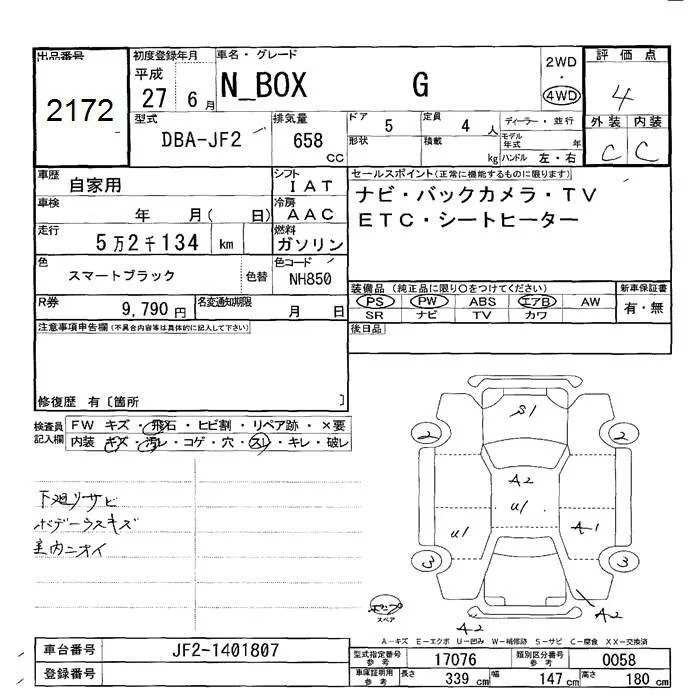 出品番号
2172
初度登録年月
平成
27 6月
車名・グレード
N_BOX G
2WD
・
4WD
評価点
4
外装 内装
C C
型式
DBA-JF2
排気量
658
CC
ドア 5
定員 4 人
ディーラー・並行
形状
積載 kg
モデル年式 年
ハンドル 左・右
車歴
自家用
シフト
IAT
セールスポイント(正常に機能するものに限ります)
ナビ・バックカメラ・TV
ETC・シートヒーター
車検
年 月( 日)
冷房
AAC
走行
5万2千134 km
燃料
ガソリン
色
スマートブラック
色替
色コード
NH850
装備品(純正品に限り〇をつけてください)
PS PW ABS エアB AW
SR ナビ TV カワ
新車保証書
有・無
R券
9,790円
名変通知期限
月 日
後日品
注意事項申告欄(不具合内容等は具体的に記入して下さい)
修復歴 有〔箇所 〕
検査員
記入欄
FW キズ・飛石・ヒビ割・リペア跡・×要
内装 キズ・汚レ・コゲ・穴・スレ・キレ・破レ
下廻リサビ
ボデーウスキズ
室内ニオイ
S1
2 2
A2
U1
U1 A-1
3 3
スペア
A-2
A-2
A―キズ E―エクボ U―凹み W―補修跡 S―サビ C―腐食 XX―交換済
車台番号
JF2-1401807
登録番号
型式指定番号
参考
17076
類別区分番号
参考
0058
車庫証明用
参考
長さ 339 cm 幅 147 cm 高さ 180 cm